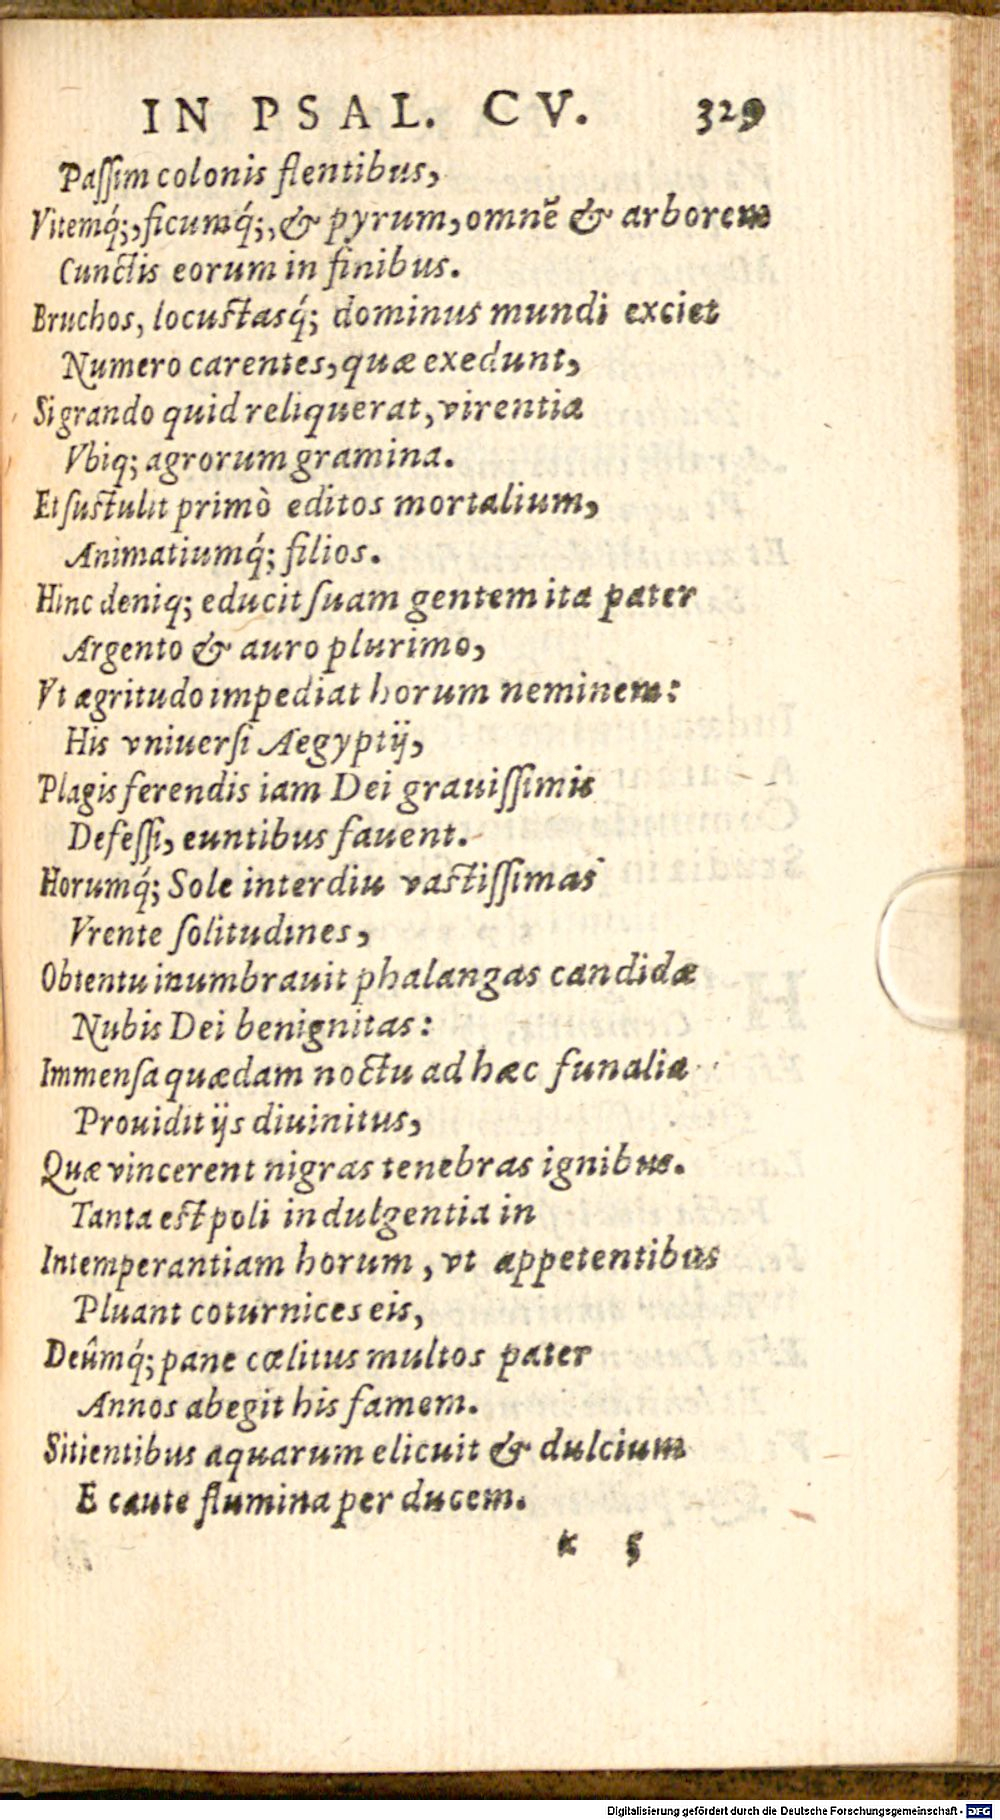 IN PSAL. CV. 329
Paſſim colonis flentibus,
Vitemq́;, ficumq́;, & pyrum, omnē & arborem
Cunctis eorum in finibus.
Bruchos, locustasq́; dominus mundi exciet
Numero carentes, quæ exedunt,
Si grando quid reliquerat, virentia
Vbiq; agrorum gramina.
Et ſustulit primò editos mortalium,
Animatiumq́; filios.
Hinc deniq; educit ſuam gentem ita pater
Argento & auro plurimo,
Vt ægritudo impediat horum neminem:
His vniuerſi Aegyptij,
Plagis ferendis iam Dei grauiſſimis
Defeſſi, euntibus fauent.
Horumq́; Sole interdiu vastiſſimas
Vrente ſolitudines,
Obtentu inumbrauit phalangas candidæ
Nubis Dei benignitas:
Immenſa quædam noctu ad hæc funalia
Prouidit ijs diuinitus,
Quæ vincerent nigras tenebras ignibus.
Tanta est poli indulgentia in
Intemperantiam horum, vt appetentibus
Pluant coturnices eis,
Deûmq́; pane cælitus multos pater
Annos abegit his famem.
Sitientibus aquarum elicuit & dulcium
E caute flumina per ducem.
x 5
Digitalisierung gefördert durch die Deutsche Forschungsgemeinschaft - DFG